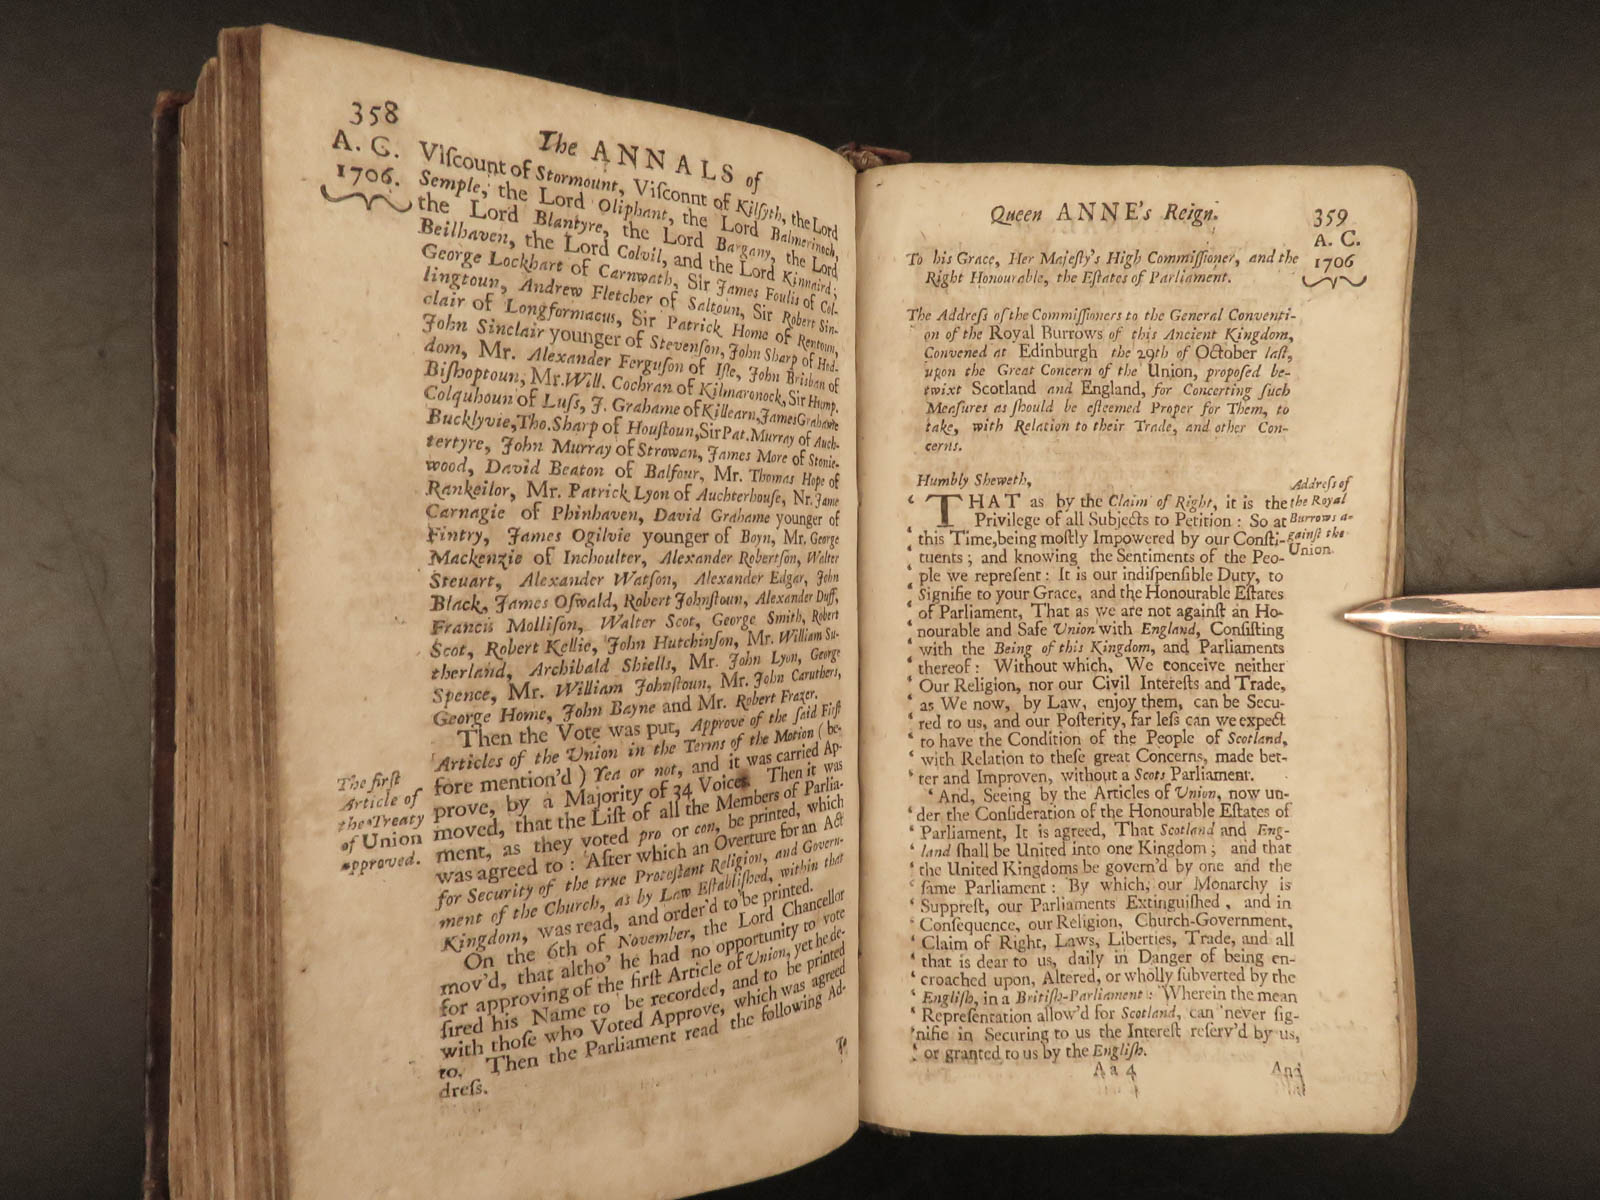 358
The ANNALS of
A. C.
1706.
Viſcount of Stormount, Viſconnt of Kilſyth, the Lord
Semple, the Lord Oliphant, the Lord Balmerinoch,
the Lord Blantyre, the Lord Bargany, the Lord
Beilhaven, the Lord Colvil, and the Lord Kinnaird;
George Lockhart of Carnwath, Sir James Foulis of Col-
lingtoun, Andrew Fletcher of Saltoun, Sir Robert Sin-
clair of Longformacus, Sir Patrick Home of Rentoun,
John Sinclair younger of Stevenſon, John Sharp of Hod-
dom, Mr. Alexander Ferguſon of Iſle, John Brisban of
Biſhoptoun, Mr. Will. Cochran of Kilmaronock, Sir Hump.
Colquhoun of Luſs, J. Grahame of Killearn, James Grahame
Bucklyvie, Tho. Sharp of Houſtoun, Sir Pat. Murray of Auch-
tertyre, John Murray of Strowan, James More of Stonie-
wood, David Beaton of Balfour, Mr. Thomas Hope of
Rankeilor, Mr. Patrick Lyon of Auchterhouſe, Nr. Jame
Carnagie of Phinhaven, David Grahame younger of
Fintry, James Ogilvie younger of Boyn, Mr. George
Mackenzie of Inchoulter, Alexander Robertſon, Walter
Steuart, Alexander Watſon, Alexander Edgar, John
Black, James Oſwald, Robert Johnſtoun, Alexander Duff,
Francis Molliſon, Walter Scot, George Smith, Robert
Scot, Robert Kellie, John Hutchinſon, Mr. William Su-
therland, Archibald Shiells, Mr. John Lyon, George
Spence, Mr. William Johnſtoun, Mr. John Caruthers,
George Home, John Bayne and Mr. Robert Frazer.
Then the Vote was put, Approve of the ſaid Firſt
Articles of the Union in the Terms of the Motion (be-
fore mention'd) Yea or not, and it was carried Ap-
prove, by a Majority of 34 Voices. Then it was
moved, that the Liſt of all the Members of Parlia-
ment, as they voted pro or con, be printed, which
was agreed to: After which an Overture for an Act
for Security of the true Proteſtant Religion, and Govern-
ment of the Church, as by Law Eſtabliſhed, within that
Kingdom, was read, and order'd to be printed.
The firſt
Article of
the Treaty
of Union
approved.
On the 6th of November, the Lord Chancellor
mov'd, that altho' he had no opportunity to vote
for approving of the firſt Article of Union, yet he de-
ſired his Name to be recorded, and to be printed
with thoſe who Voted Approve, which was agreed
to. Then the Parliament read the following Ad-
dreſs.
Queen ANNE's Reign.
359
A. C.
1706
To his Grace, Her Majeſty's High Commiſſioner, and the
Right Honourable, the Eſtates of Parliament.
The Addreſs of the Commiſſioners to the General Conventi-
on of the Royal Burrows of this Ancient Kingdom,
Convened at Edinburgh the 29th of October laſt,
upon the Great Concern of the Union, propoſed be-
twixt Scotland and England, for Concerting ſuch
Meaſures as ſhould be eſteemed Proper for Them, to
take, with Relation to their Trade, and other Con-
cerns.
Humbly Sheweth,
‘ THAT as by the Claim of Right, it is the
‘ Privilege of all Subjects to Petition: So at
‘ this Time, being moſtly Impowered by our Conſti-
‘ tuents; and knowing the Sentiments of the Peo-
‘ ple we repreſent: It is our indiſpenſible Duty, to
‘ Signifie to your Grace, and the Honourable Eſtates
‘ of Parliament, That as we are not againſt an Ho-
‘ nourable and Safe Union with England, Conſiſting
‘ with the Being of this Kingdom, and Parliaments
‘ thereof: Without which, We conceive neither
‘ Our Religion, nor our Civil Intereſts and Trade,
‘ as We now, by Law, enjoy them, can be Secu-
‘ red to us, and our Poſterity, far leſs can we expect
‘ to have the Condition of the People of Scotland,
‘ with Relation to theſe great Concerns, made bet-
‘ ter and Improven, without a Scots Parliament.
Addreſs of
the Royal
Burrows a-
gainſt the
Union.
‘ And, Seeing by the Articles of Union, now un-
‘ der the Conſideration of the Honourable Eſtates of
‘ Parliament, It is agreed, That Scotland and Eng-
‘ land ſhall be United into one Kingdom; and that
‘ the United Kingdoms be govern'd by one and the
‘ ſame Parliament: By which, our Monarchy is
‘ Suppreſt, our Parliaments Extinguiſhed, and in
‘ Conſequence, our Religion, Church-Government,
‘ Claim of Right, Laws, Liberties, Trade, and all
‘ that is dear to us, daily in Danger of being en-
‘ croached upon, Altered, or wholly ſubverted by the
‘ Engliſh, in a Britiſh-Parliament: Wherein the mean
‘ Repreſentation allow'd for Scotland, can never ſig-
‘ nifie in Securing to us the Intereſt reſerv'd by us,
‘ or granted to us by the Engliſh.
Aa 4
And